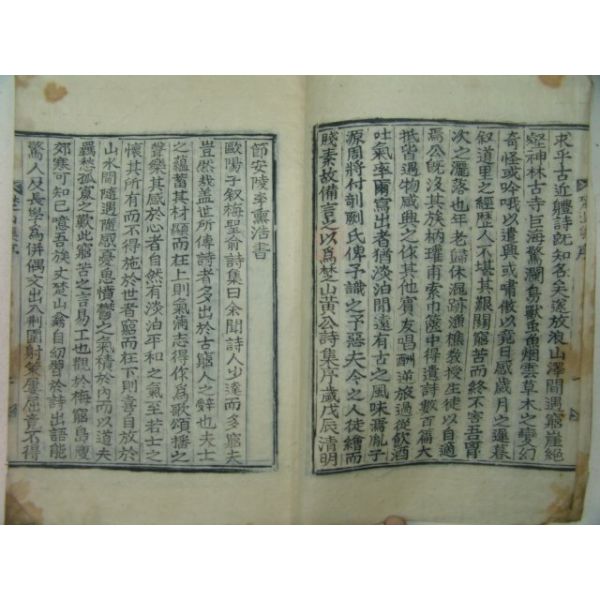 求乎古近軆詩旣知名矣遂放浪山澤間遇窮崖絶
壑神林古寺巨海驚瀾鳥獸虫魚烟雲草木之變幻
奇怪或吟哦以遣興或嘯傲以竟日感歲月之遲暮
叙道里之經歷人不堪其艱關窮苦而終不害吾胷
次之灑落也年老歸休溷跡漁樵敎授生徒以自適
焉公旣沒其族柄瓘甫索巾篋中得遺詩數百篇大
抵皆遇物感興之作其他賓友唱酬逆旅過從飮酒
吐氣率爾寫出者猶淡泊閒遠有古之風味瀉胤子
源周將村剞劂氏俾予識之予惡夫今之人徒繪而
賤素故備言之以爲楚山黃公詩集序歲戊辰淸明
節安陵李熏浩書
歐陽子叙梅聖兪詩集曰余聞詩人少達而多窮夫
豈然哉盖世所傳詩者多出於古窮人之辭也夫士
之蘊蓄其材顯而在上則氣滿志得作爲歌頌播之
聲樂其感於心者自然有淡泊平和之氣至若士之
懷其所有而不得施於世者窮而在下則喜自放於
山水間隨遇隨感憂思憤鬱之氣積於內而以道夫
羈愁孤寡之歎此窮苦之言易工也觀於梅窮島廋
郊寒可知已噫吾族丈楚山翁自幼嗜於詩出語能
驚人及長學爲俳偶文出入荊圍射策屢屈竟不得